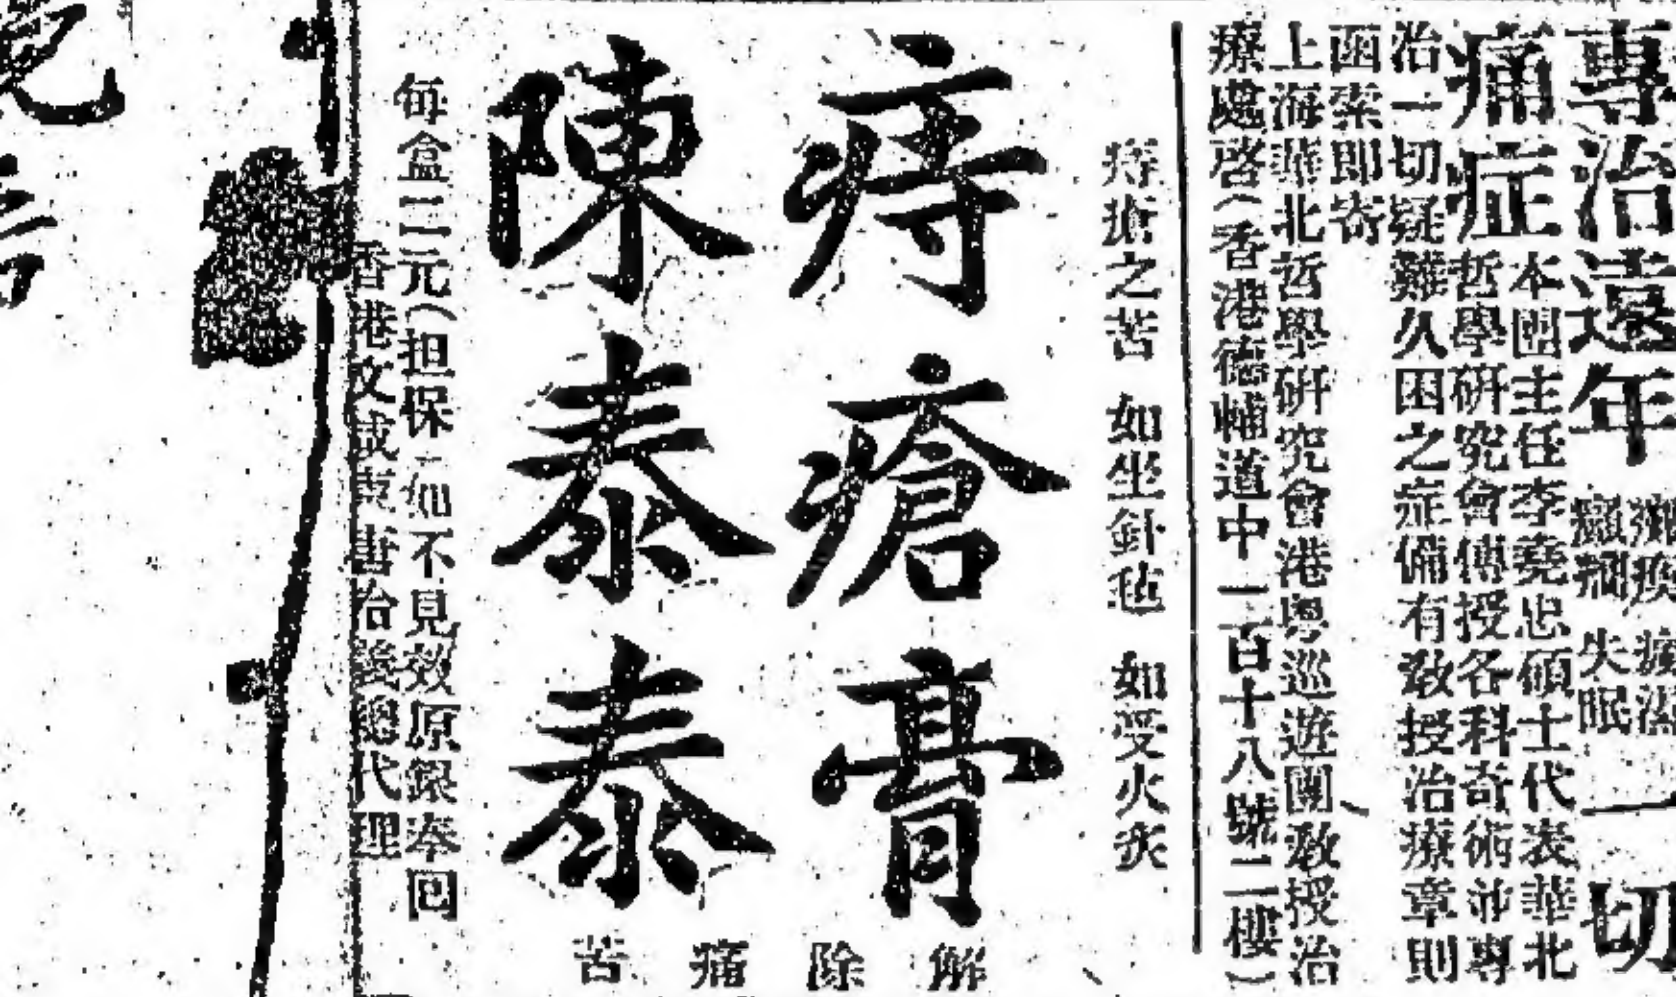 專治遠年 一切
失眠
痛症
本團主任李堯忠碩士代表華北
哲學研究會傳授各科奇術並專
治一切疑難久困之症備有教授治療章則
函索即寄
上海華北哲學研究會港粵巡遊團教授治
療處啓(香港德輔道中一百十八號二樓)
痔瘡之苦 如坐針毡 如受火炙
痔瘡膏
陳泰泰
解除痛苦
每盒二元(担保)如不見效原銀奉回
香港文咸東書 總代理